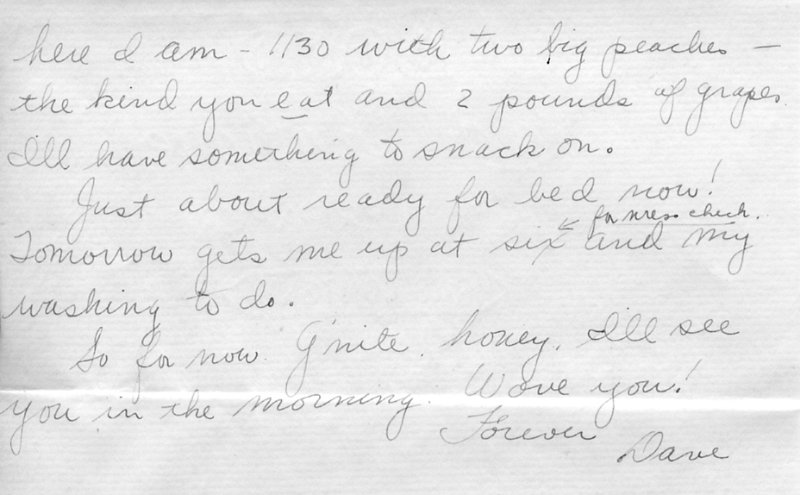 here I am - 1130 with two big peaches -
the kind you eat and 2 pounds of grapes.
I'll have something to snack on.
Just about ready for bed now!
for mess check.
Tomorrow gets me up at six and my
washing to do.
So for now. G'nite, honey. I'll see
you in the morning. Wove you!
Forever
Dave